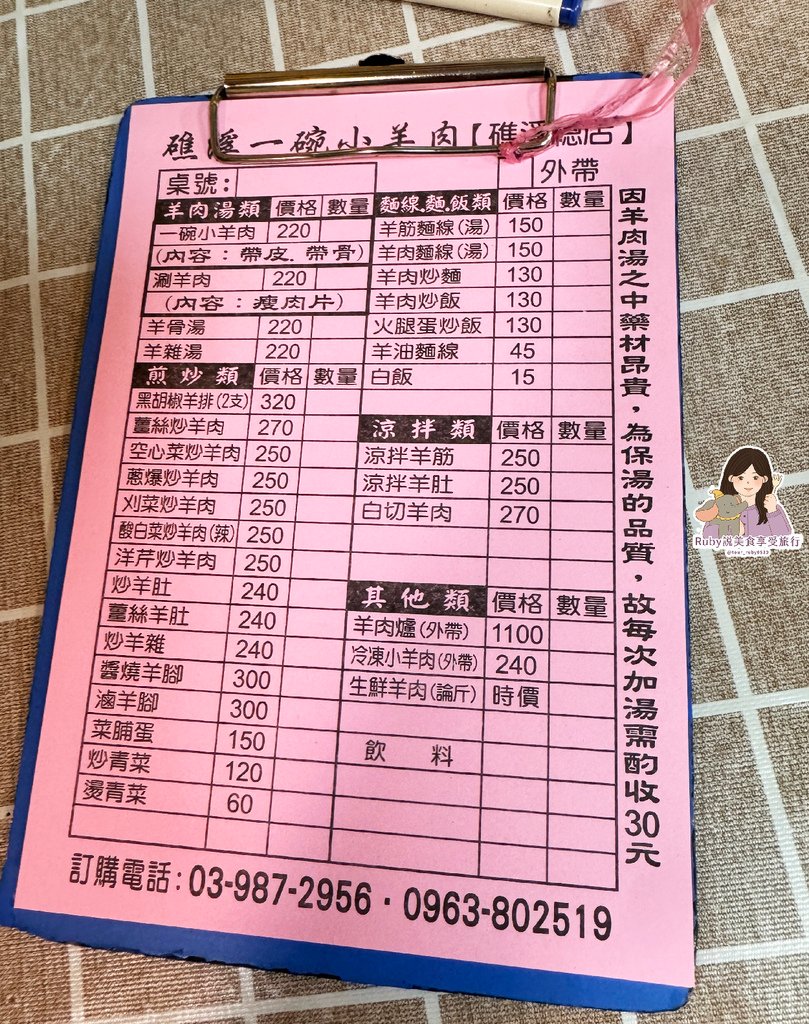 礁溪一碗小羊肉【礁溪總店】
桌號:
外帶
羊肉湯類 價格 數量
一碗小羊肉 220
(內容：帶皮.帶骨)
涮羊肉 220
(內容：瘦肉片)
羊骨湯 220
羊雜湯 220
煎炒類 價格 數量
黑胡椒羊排(2支) 320
薑絲炒羊肉 270
空心菜炒羊肉 250
蔥爆炒羊肉 250
刈菜炒羊肉 250
酸白菜炒羊肉(辣) 250
洋芹炒羊肉 250
炒羊肚 240
薑絲羊肚 240
炒羊雜 240
醬燒羊腳 300
滷羊腳 300
菜脯蛋 150
炒青菜 120
燙青菜 60
麵線.麵.飯類 價格 數量
羊筋麵線(湯) 150
羊肉麵線(湯) 150
羊肉炒麵 130
羊肉炒飯 130
火腿蛋炒飯 130
羊油麵線 45
白飯 15
涼拌類 價格 數量
涼拌羊筋 250
涼拌羊肚 250
白切羊肉 270
其他類 價格 數量
羊肉爐(外帶) 1100
冷凍小羊肉(外帶) 240
生鮮羊肉(論斤) 時價
飲 料
因羊肉湯之中藥材昂貴，為保湯的品質，故每次加湯需酌收30元
訂購電話:03-987-2956·0963-802519
Ruby說美食享受旅行
@tour_ruby0533